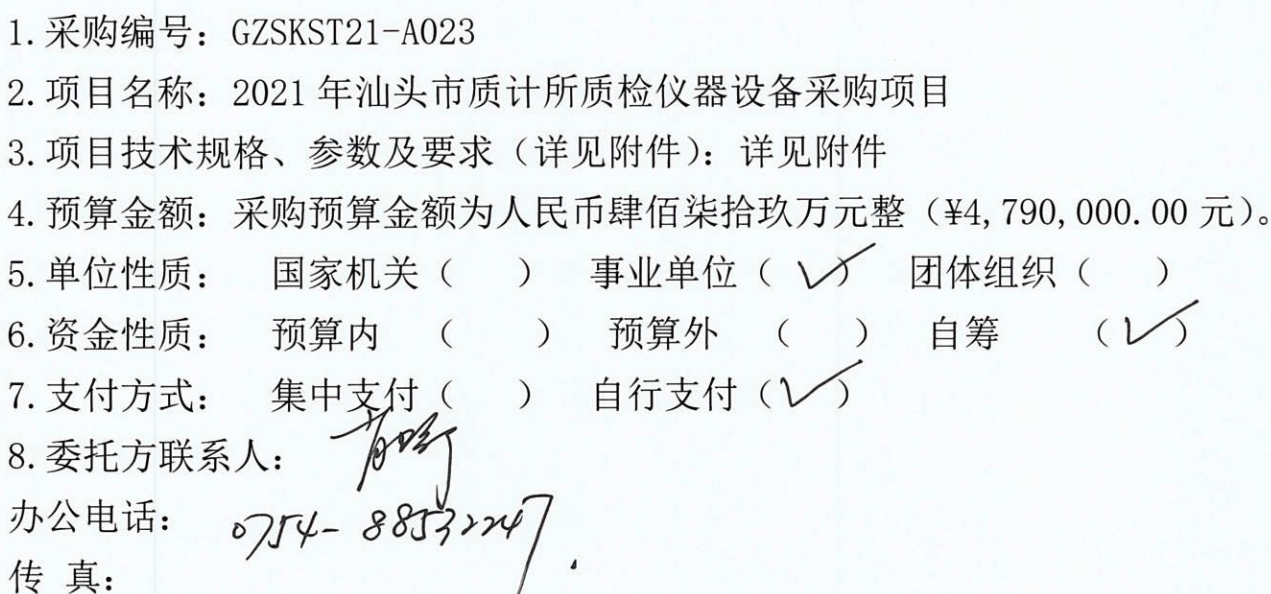 1.采购编号：GZSKST21-A023
2.项目名称：2021年汕头市质计所质检仪器设备采购项目
3.项目技术规格、参数及要求（详见附件）：详见附件
4.预算金额：采购预算金额为人民币肆佰柒拾玖万元整（¥4,790,000.00元）。
5.单位性质： 国家机关（ ） 事业单位（ ✓ ） 团体组织（ ）
6.资金性质： 预算内 （ ） 预算外 （ ） 自筹 （ ✓ ）
7.支付方式： 集中支付（ ） 自行支付（ ✓ ）
8.委托方联系人：
办公电话： 0754-88532247
传 真：